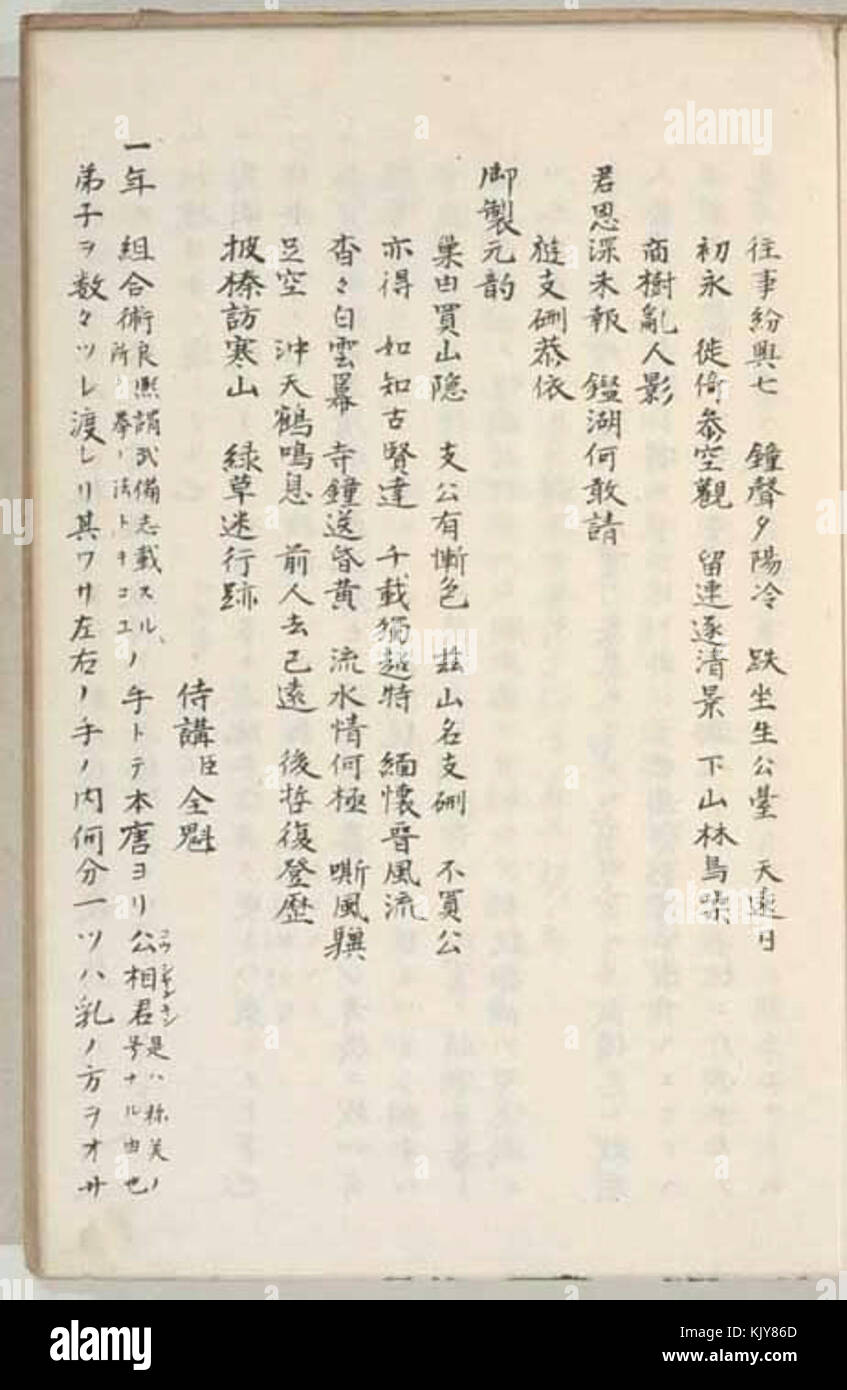 往事紛興亡 鐘聲夕陽冷 趺坐生公臺 天遠日
初永 徙倚參空觀 留連逐清景 下山林鳥
商樹亂人影
君恩深未報 鑑湖何敢請
遊支硎恭依
御製元韵
巢由買山隐 支公有慚色 茲山名支硎 不買公
亦得 如知古賢達 千載獨超特 緬懷晉風流
杳々白雲幕 寺鐘送昏黄 流水情何極 嘶風驥
足空 沖天鶴鳴息 前人去已遠 後哲復登歷
披榛訪寒山 緑草迷行跡
侍講臣全魁
一年 組合術良熈謂武備志載スル所ノ拳ノ法トキコユ、ノ手トテ本唐ヨリ公相君コウシヤンキン是ハ称美ノ号ナル由也
弟子ヲ数々ツレ渡レリ其ワサ左右ノ手ノ内何分一ツハ乳ノ方ヲオサ
alamy
KJY86D
www.alamy.com